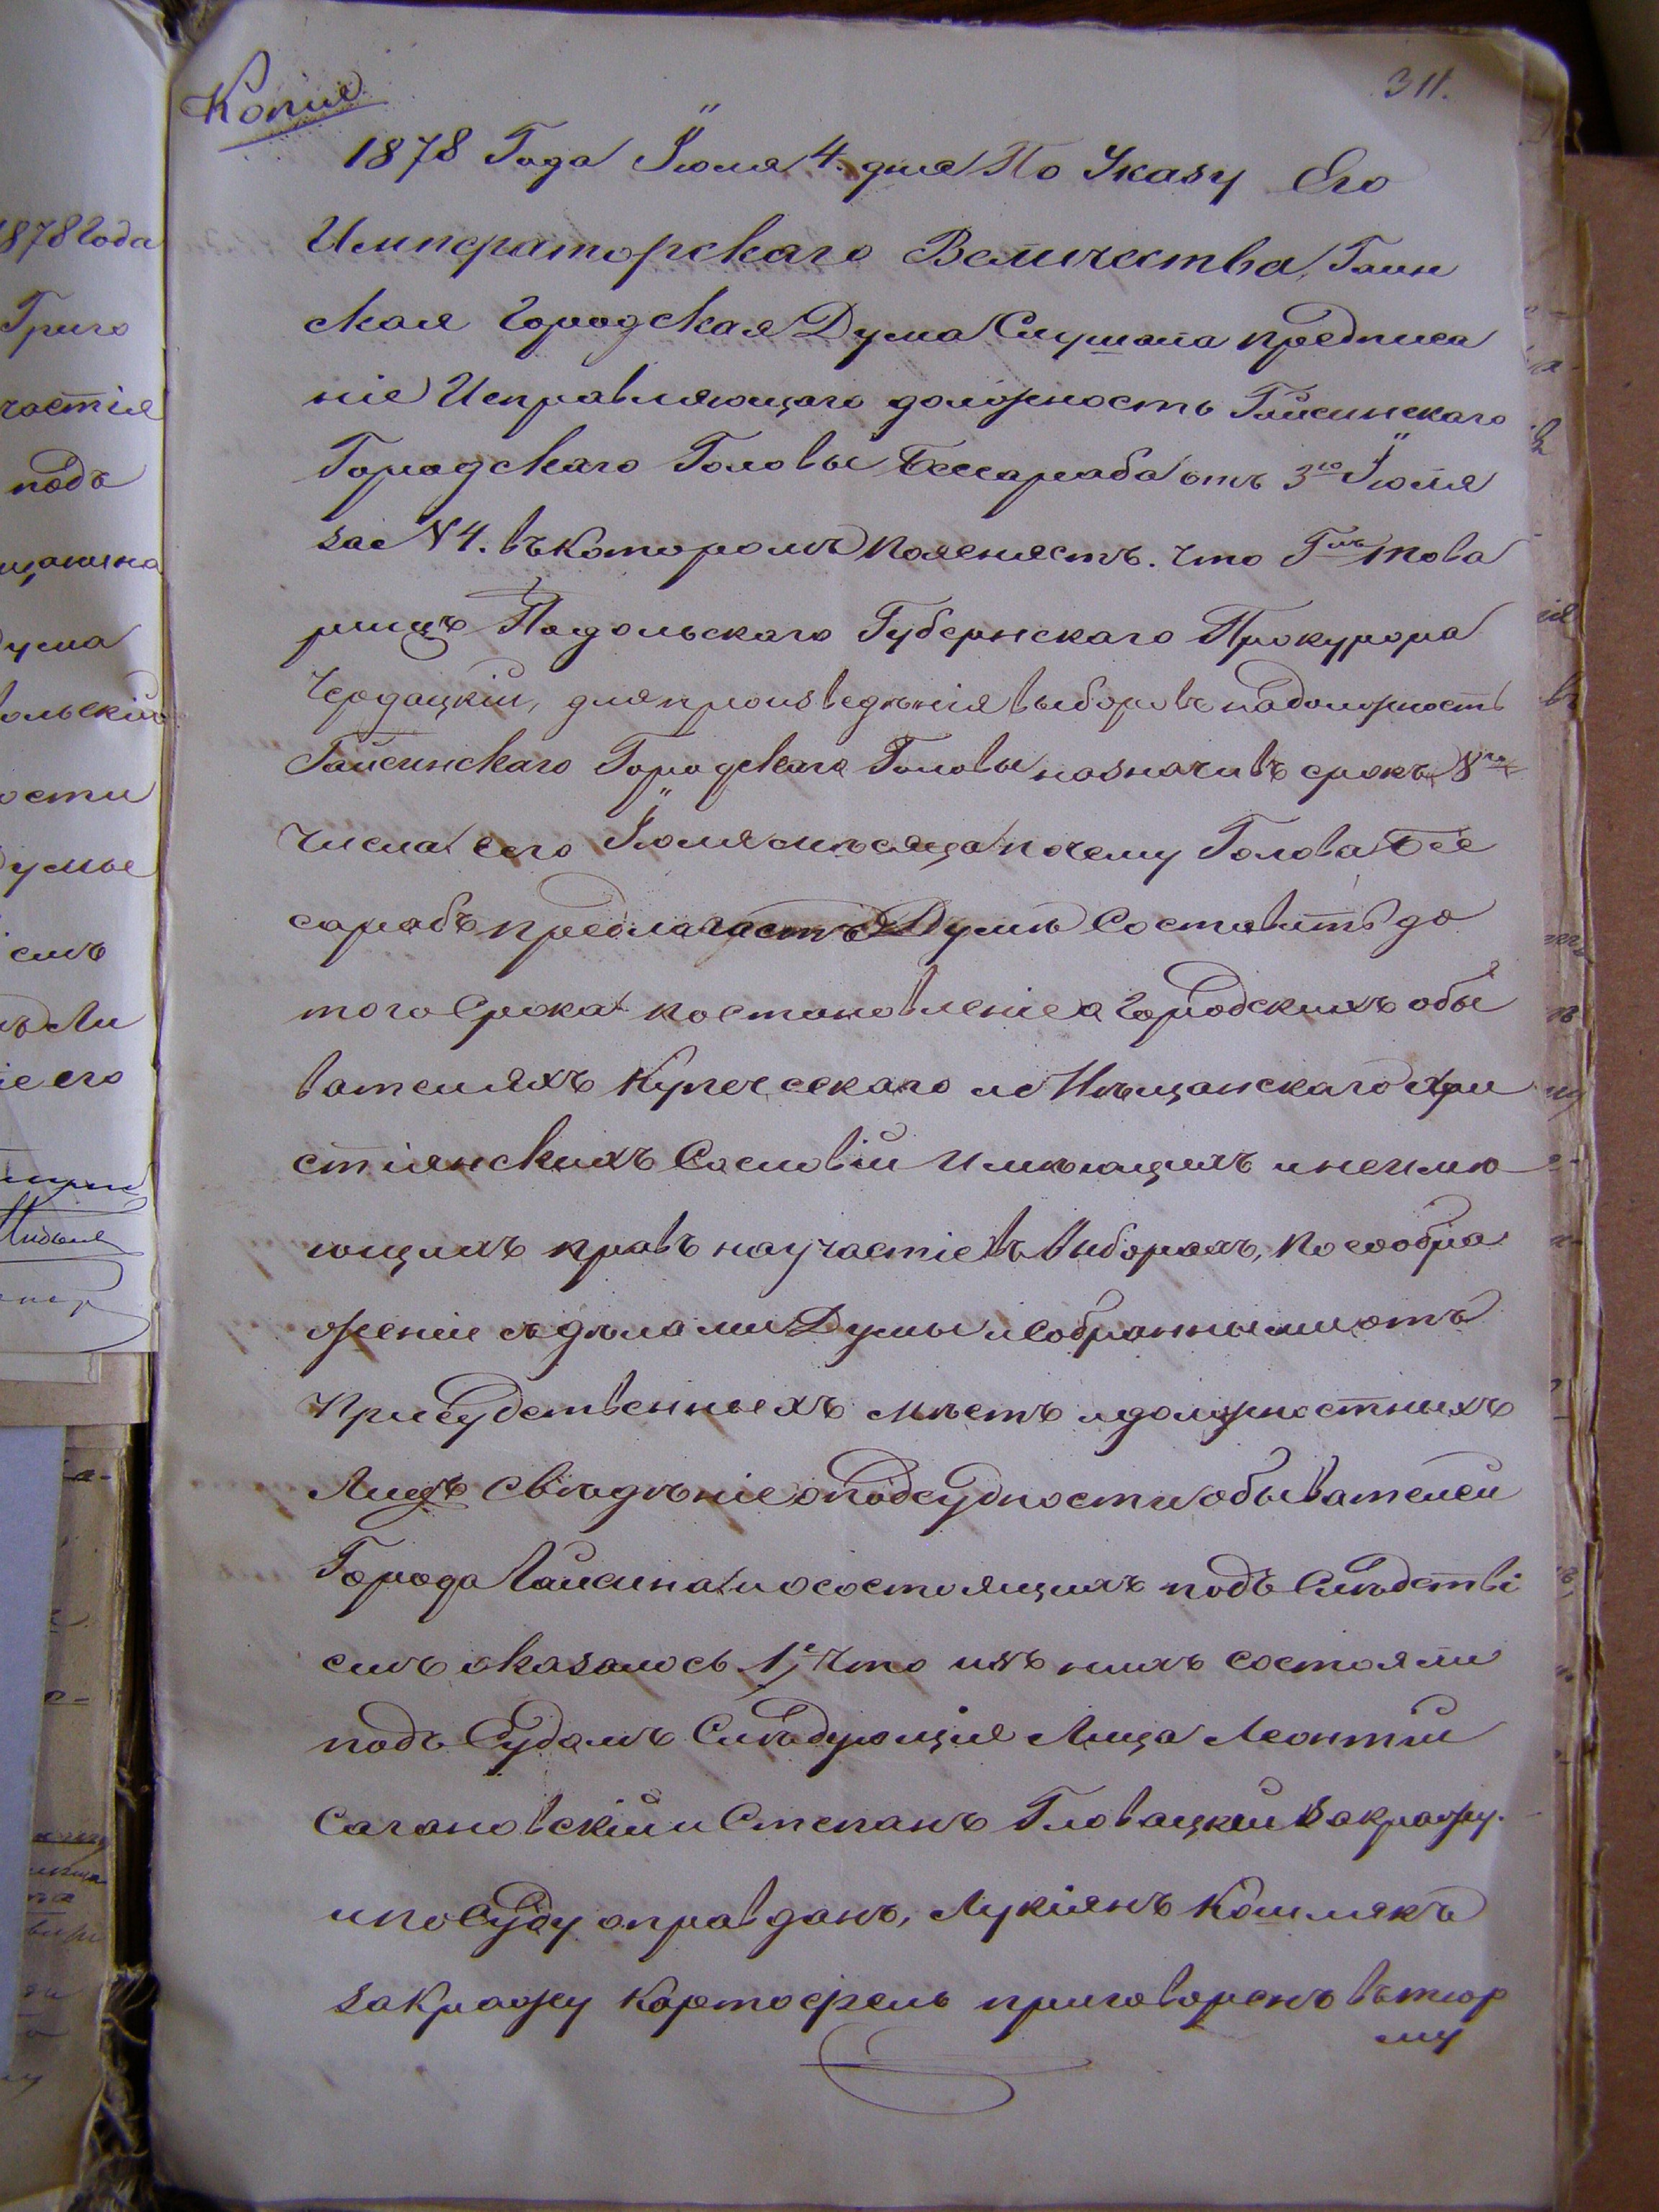 Копія
311.
1878 Года Іюля 4. дня По Указу Его
Императорскаго Величества, Гаин
ская Городская Дума Слушала предписа
ніе Исправляющаго должность Гайсинскаго
Городскаго Головы Бессараба отъ 3го Іюля
за N 4. въ которомъ поясняетъ. что Гнъ това
рищъ Подольскаго Губернскаго Прокурора
Чередацкій, для произведѣнія выборовъ на должность
Гайсинскаго Городскаго Головы назначивъ срокъ 8го
числа сего Іюля мѣсяца почему Голова Бес
сарабъ предлагаетъ Думѣ Составить до
того Срока постановленіе о Городскихъ обы
вателяхъ Купеческаго и Мѣщанскаго Хри
стіянскихъ Сословій Имѣющихъ и неимѣ
ющихъ правъ на участіе въ Выборахъ, по сообра
женіи съ дѣлами Думы и Собранными отъ
Присудственныхъ мѣстъ и должностныхъ
Лицъ свѣдѣніе о подсудности обывателей
Города Гайсина и о состоящихъ подъ Слѣдстві
емъ оказалось 1е, Что изъ нихъ состояли
подъ Судомъ Слѣдующія Лица Леонтій
Сагановскій и Степанъ Гловацкій за кражу.
и по Суду оправданъ, Лукіянъ Кошлякъ
за кражу картофель приговоренъ въ тюр
му
1878 Года
Григо
частія
подъ
ума
ольскій
ости
умые
емъ
іе его